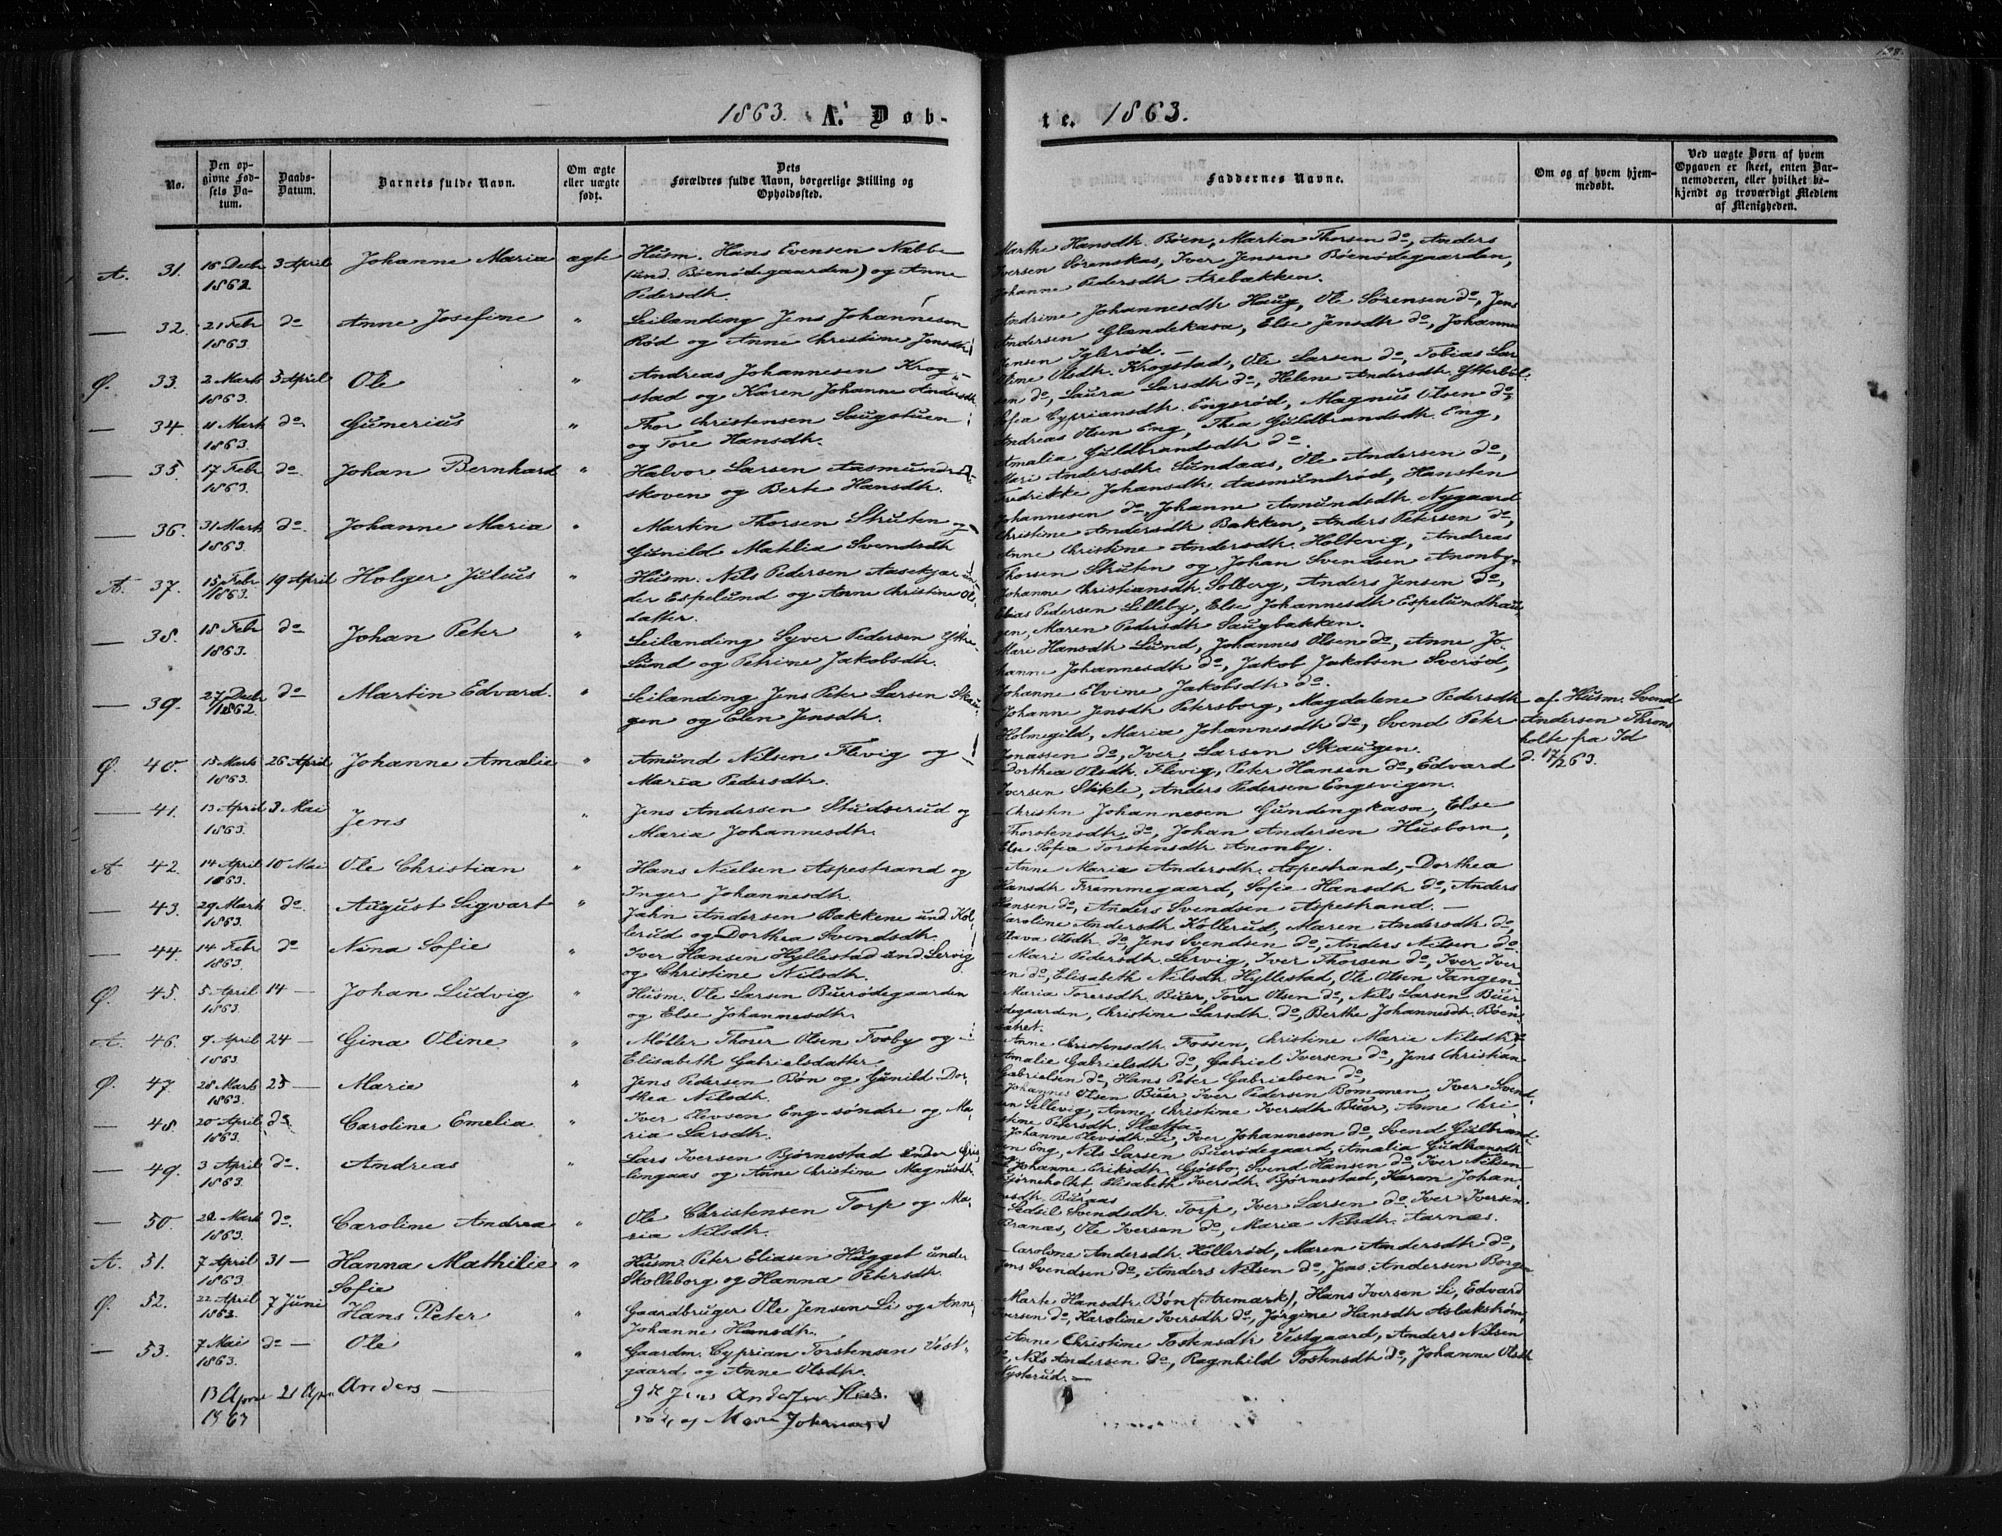 1863. A. Døb-
No.
Den opgivne Fødsels Datum.
Daabs-Datum.
Barnets fulde Navn.
Om ægte eller uægte født.
Dets Forældres fulde Navn, borgerlige Stilling og Opholdssted.
A. 31. 16 Decb 1862 3 April Johanne Maria ægte Husm. Hans Evensen Næbbe
(und. Bøenødegaarden) og Anne
Pedersdtr.
— 32. 21 Febr 1863. do Anne Josefine " Leilænding Jens Johannesen
Rød og Anne Christine Jensdtr
Ø. 33. 2 Marts 1863. 5 April Ole " Andreas Johannesen Krog-
stad og Karen Johanne Andersdtr
— 34. 11 Marts 1863 do. Gumerius " Thor Christensen Saugstuen
og Tore Hansdtr.
— 35. 17 Febr 1863. do. Johan Bernhard " Halvor Larsen Aasmundrød-
skoven og Berte Hansdtr.
— 36. 31 Marts 1863. do Johanne Maria " Martin Thorsen Struten og
Gunild Mathlia Svendsdtr
A. 37. 15 Febr 1863. 19 April Holger Julius " Husm. Nils Pedersen Aasekjær un-
der Espelund og Anne Christine Ols-
datter.
— 38. 18 Febr 1863. do Johan Peter " Leilænding Syver Pedersen Ytre-
Lund og Petrine Jakobsdtr.
— 39. 27 Decb 1862 do Martin Edvard. " Leilænding Jens Peter Larsen Skau-
gen og Elen Jensdtr.
Ø. 40. 15 Marts 1863. 26 April Johanne Amalie " Amund Nilsen Flevig og
Maria Pedersdtr.
— 41. 13 April 1863. 3 Mai Jens " Jens Andersen Studserud og
Maria Johannesdtr.
A 42. 14 April 1863. 10 Mai Ole Christian " Hans Nielsen Aspestrand og
Inger Johannesdtr.
— 43. 29 Marts 1863. do. August Sigvart " Jahn Andersen Bakkene und Kol-
lerud og Dorthea Svendsdtr.
— 44. 14 Febr 1863. do Nina Sofie " Iver Hansen Hyllestad und Lervig
og Christine Nilsdtr.
Ø. 45. 5 April 1863. 14 — Johan Ludvig " Husm. Ole Larsen Buerødegaarden
og Else Johannesdtr.
A. 46. 9 April 1863 24 — Gina Oline " Møller Thorer Olsen Fosby og
Elisabeth Gabrielsdatter
Ø. 47. 28 Marts 1863. 25 — Marie " Jens Pedersen Bøn og Gunild Dor-
thea Nilsdtr.
— 48. 20 April 1863. do. Caroline Emelia " Iver Elevsen Eng-søndre og Ma-
ria Larsdtr.
— 49. 3 April 1863. do. Andreas " Lars Iversen Bjørnestad under Gris-
lingaas og Anne Christine Magnusdtr
— 50. Marts 1863. do. Caroline Andrea " Ole Christensen Torp og Ma-
ria Nilsdtr.
A. 51. 7 April 1863 31 — Hanna Mathilie Sofie " Husm. Peter Eliasen Hugget under
Skolleborg og Hanna Petersdtr.
Ø. 52. 22 April 1863. 7 Juni Hans Peter " Gaardbruger Ole Jensen Li og Anne
Johanne Hansdtr.
— 53. 7 Mai 1863. do — Ole " Gaardm. Cyprian Torstensen Vest-
gaard og Anne Olsdtr.
13 April 1863 21 Apr. Anders — Jens Andersen
og
te. 1863.
Faddernes Navne.
Om og af hvem hjemmedøbt.
Ved uægte Børn af hvem Opgaven er skeet, enten Barnemoderen, eller hvilket bekjendt og troværdigt Medlem af Menigheden.
Marthe Hansdtr. Bøen, Martin Thorsen do, Anders
Iversen Sørenskas, Iver Jensen Bøenødegaarden,
Johanne Pedersdtr Arebakken.
Andrine Johannesdtr Haug, Ole Sørensen do, Jens
Andersen Glendekasa, Else Jensdtr do, Johannes
Jensen Iglerød. —
Oline Olsdtr. Krogstad, Ole Larsen do, Tobias Lar-
sen do, Laura Larsdtr do, Helene Andersdtr. Ytterbøl.
Sofia Cypriansdtr. Engerød, Magnus Olsen do,
Andreas Olsen Eng, Thea Guldbrandsdtr. Eng,
Amalia Guldbrandsdtr do.
Mari Andersdtr Sundaas, Ole Andersen do,
Fredrikke Johansdtr. Aasmundrød, Hansten
Johannesen do, Johanne Amundsdtr Nygaard
Christine Andersdtr Bakken, Anders Petersen do,
Anne Christine Andersdtr. Holtevig, Andreas
Thorsen Struten og Johan Svendsen Anonby.
Johanne Christiansdtr. Solberg, Anders Jensen do,
Elias Pedersen Lilleby, Else Johannesdtr Espelundhau-
gen, Maren Pedersdtr Saugbakken.
Mari Hansdtr Lund, Johannes Olsen do, Anne Jo-
hanne Johannesdtr do, Jakob Jakobsen Sverød,
Johanne Elvine Jakobsdtr do.
Johann Jensdtr Petersborg, Magdalene Pedersdtr
Holmegild, Maria Johannesdtr do, Svend Peter
Jonassen do, Iver Larsen Skaugen.
af Husm. Svend
Andersen Throns-
holte fra Id
d. 17/2 63.
Dorthea Olsdtr. Flevig, Peter Hansen do, Edvard
Iversen Stikle, Anders Pedersen Engsvigen.
— Christen Johannesen Gundengkasa, Else
Thorstensdtr do, Johan Andersen Husborn,
Else Sofia Torstensdtr Anonby.
— Anne Maria Andersdtr. Aspestrand, Dorthea
Hansdtr Frammegaard, Sofie Hansdtr do, Anders
Hansen do, Anders Svendsen Aspestrand. —
Caroline Andersdtr Kollerud, Maren Andersdtr do,
Olava Olsdtr. do, Jens Svendsen do, Anders Nilsen do.
— Mari Pedersdtr. Lervig, Iver Thorsen do, Iver Iver-
sen do, Elisabeth Nilsdtr. Hyllestad, Ole Olsen Tangen
— Maria Torersdtr. Buer, Torer Olsen do, Nils Larsen Buer-
ødegaarden, Christine Larsdtr. do, Berthe Johannesdtr. Bøen-
sætret.
— Anne Christensdtr. Fossen, Christine Marie Nilsdtr, do
Amalie Gabrielsdtr do, Gabriel Iversen do, Jens Christian
Gabrielsen do, Hans Peter Gabrielsen do,
— Johannes Olsen Buer, Iver Pedersen Bommen, Iver Svend-
sen Lillevig, Anne Christine Iversdtr Buer, Anne Chri-
stine Petersdtr. Sletta
— Johanne Elevsdtr. Li, Iver Johannesen do, Svend Gulbrand-
sen Eng, Nils Larsen Buerødegaard, Amalia Gudbrandsdtr
Johanne Eriksdtr. Gjøsbo, Svend Hansen do, Iver Nilsen
Bjørneholtet, Elisabeth Iversdtr. Bjørnestad, Karen Johan-
nesdtr. Buraas
— Ledeil Svendsdtr. Torp, Iver Larsen do, Iver Iversen
Branæs, Ole Iversen do, Maria Nilsdtr. Aarnæs.
— Caroline Andersdtr. Kollerød, Maren Andersdtr do,
Jens Svendsen do, Anders Nilsen do, Jens Andersen Borge
— Marte Hansdtr. Bøn (Aremark), Hans Iversen Li, Edvard
Iversen do, Karoline Iversdtr do, Jørgine Hansdtr Aslakstrøm
— Anne Christine Tostensdtr Vestgaard, Anders Nilsen
do, Nils Andersen do, Ragnhild Tostensdtr do, Johanne Olsdtr
Nysterud. —